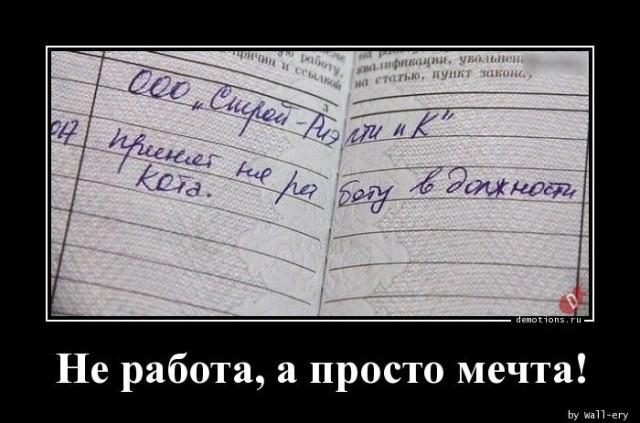 работу,
причин и ссылкой
квалификации, увольнен
на статью, пункт закона,
3
ООО „Строй-Риэлти и К"
017 принят на работу в должности
кота.
D
demotions.ru
Не работа, а просто мечта!
by wall-ery